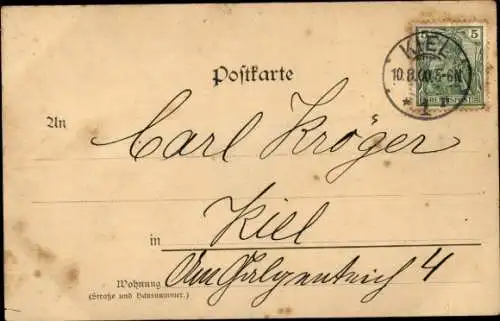 5 5
KIEL
10.8.00.5-6N.
* 1 *
REICHSPOST
Postkarte
An Carl Kröger
in Kiel
Wohnung Am Galgenteich 4
(Straße und Hausnummer.)